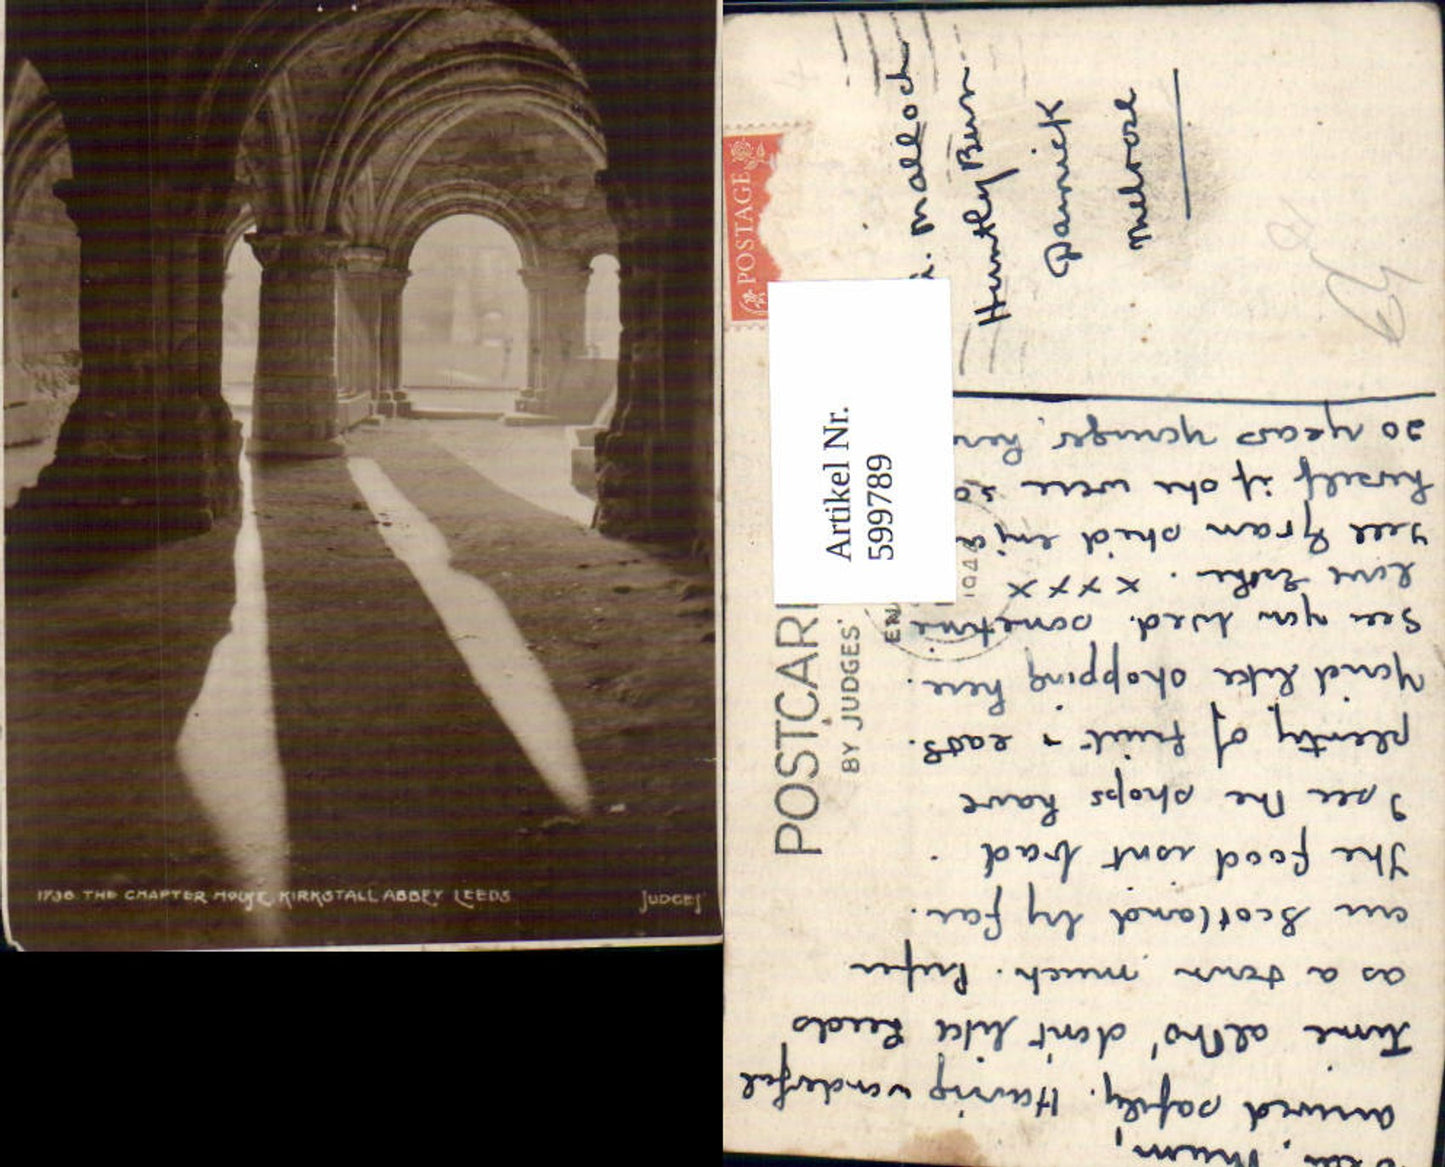 1738 THE CHAPTER HOUSE, KIRKSTALL ABBEY LEEDS
JUDGES'
POSTAGE
POSTCAR
BY JUDGES'
Artikel Nr.
599789
Malloch
Huntley Burn
Darnick
Melrose
Mum,
arrived safely. Having wonderful
time altho' don't like Leeds
as a town much. Prefer
our Scotland by far.
The food isnt bad.
I see the shops have
plenty of fruit + eats.
You'd like shopping here.
See you Wed. sometime.
love xxxx
Tell Gran she'd enjoy
herself if she were
20 years younger.